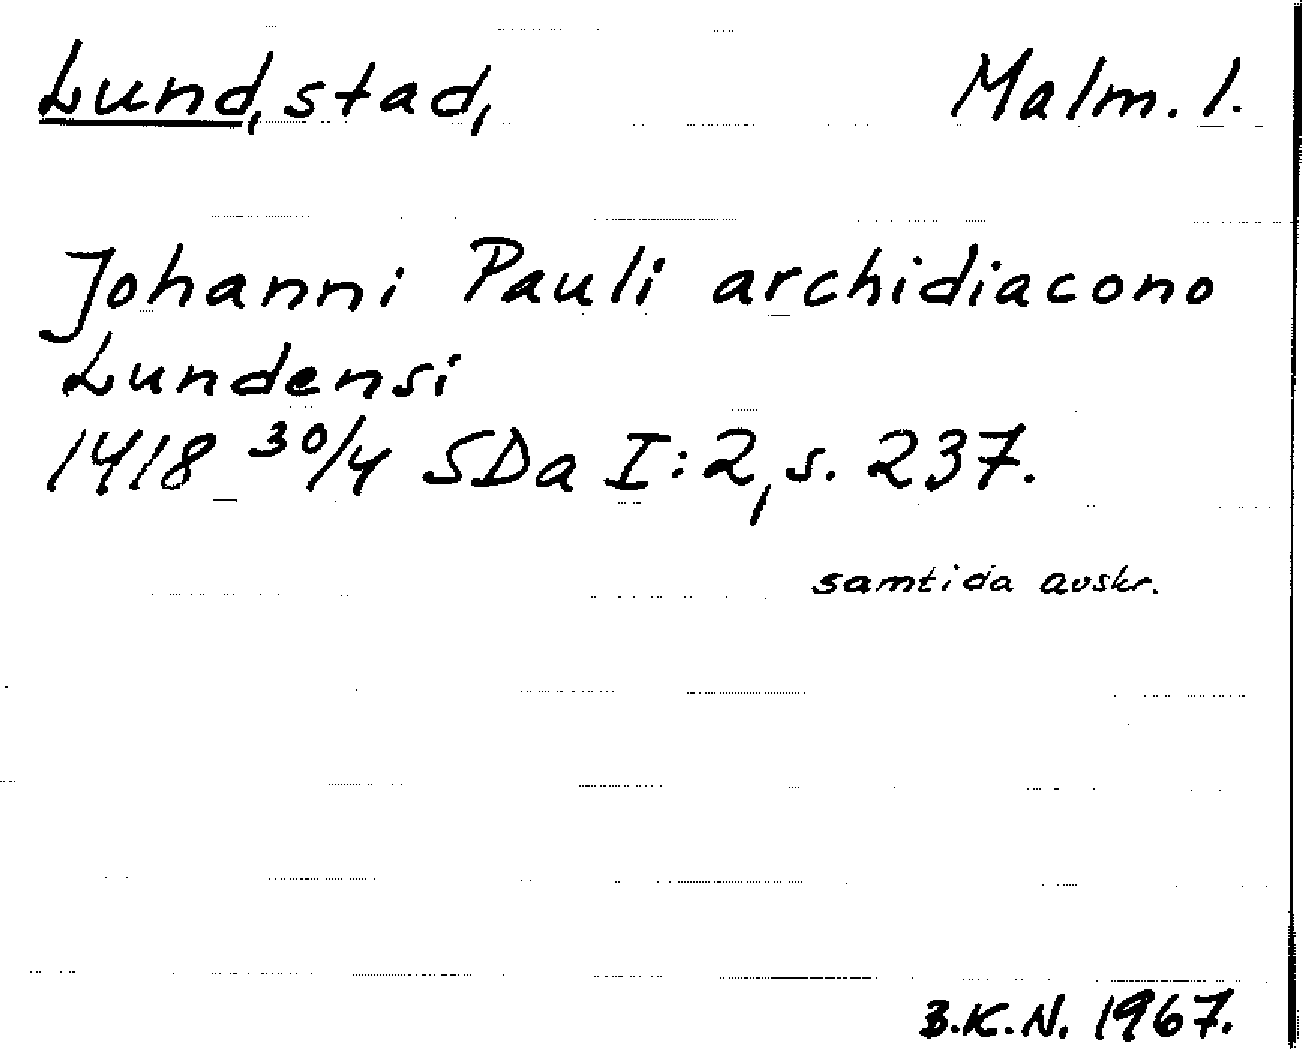 Lund, stad, Malm. l.
Johanni Pauli archidiacono
Lundensi
1418 30/4 SDa I:2, s. 237.
samtida avskr.
B.K.N. 1967.